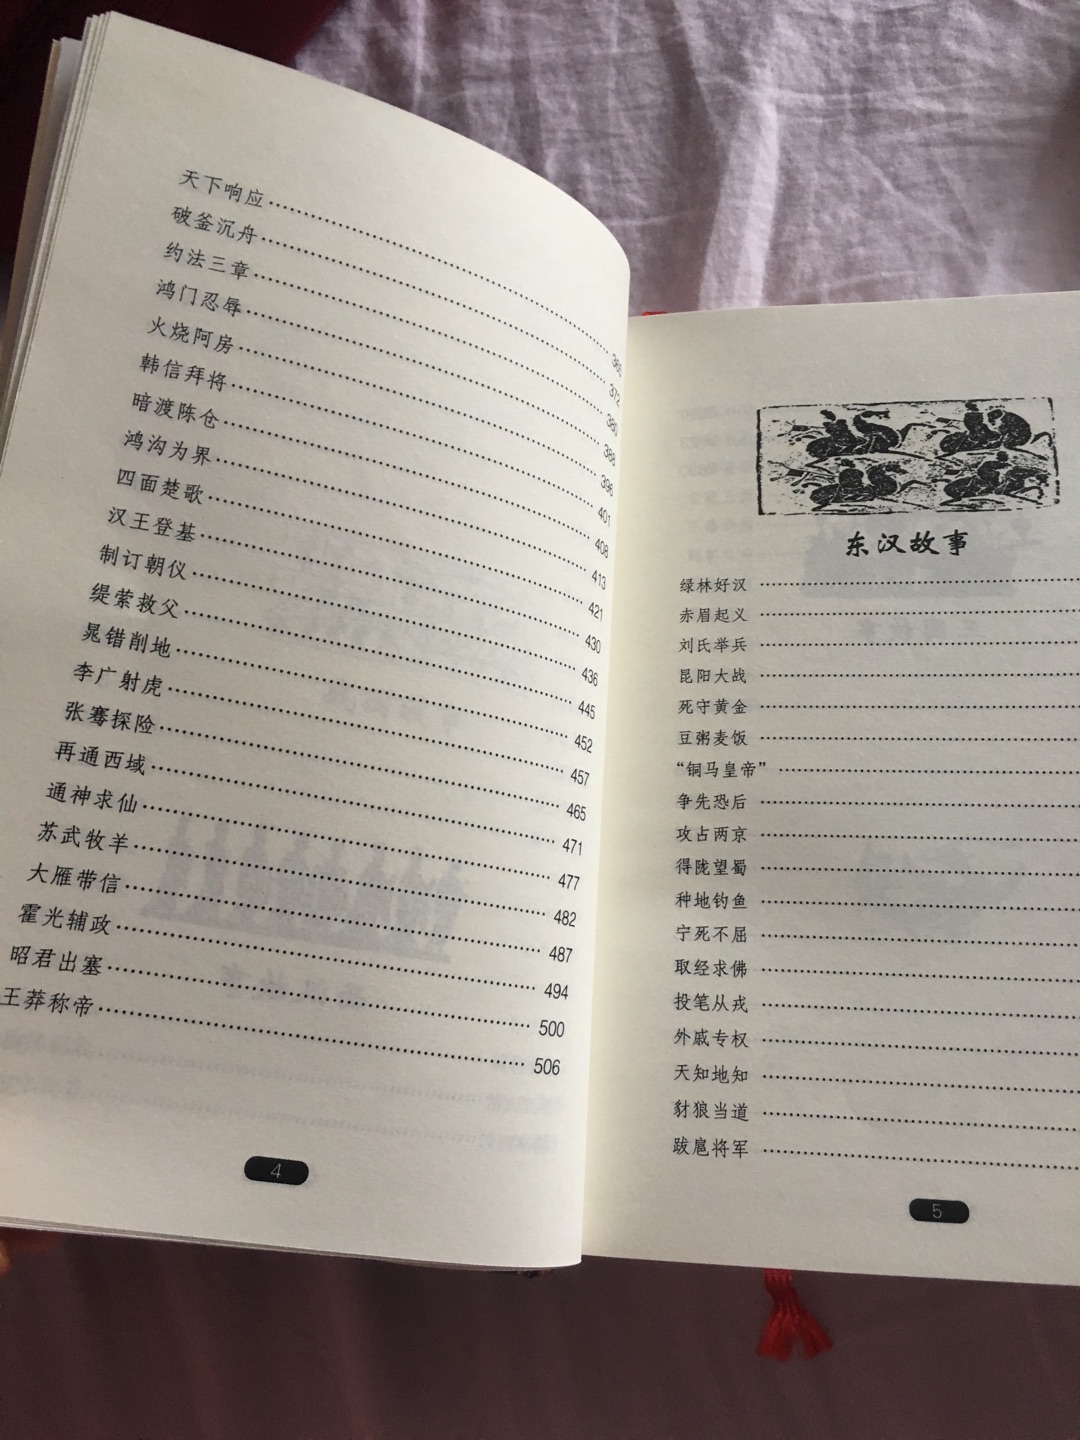 天下响应……365
破釜沉舟……372
约法三章……380
鸿门忍辱……388
火烧阿房……396
韩信拜将……401
暗渡陈仓……408
鸿沟为界……413
四面楚歌……421
汉王登基……430
制订朝仪……436
缇萦救父……445
晁错削地……452
李广射虎……457
张骞探险……465
再通西域……471
通神求仙……477
苏武牧羊……482
大雁带信……487
霍光辅政……494
昭君出塞……500
王莽称帝……506
4
东汉故事
绿林好汉……
赤眉起义……
刘氏举兵……
昆阳大战……
死守黄金……
豆粥麦饭……
“铜马皇帝”……
争先恐后……
攻占两京……
得陇望蜀……
种地钓鱼……
宁死不屈……
取经求佛……
投笔从戎……
外戚专权……
天知地知……
豺狼当道……
跋扈将军……
5